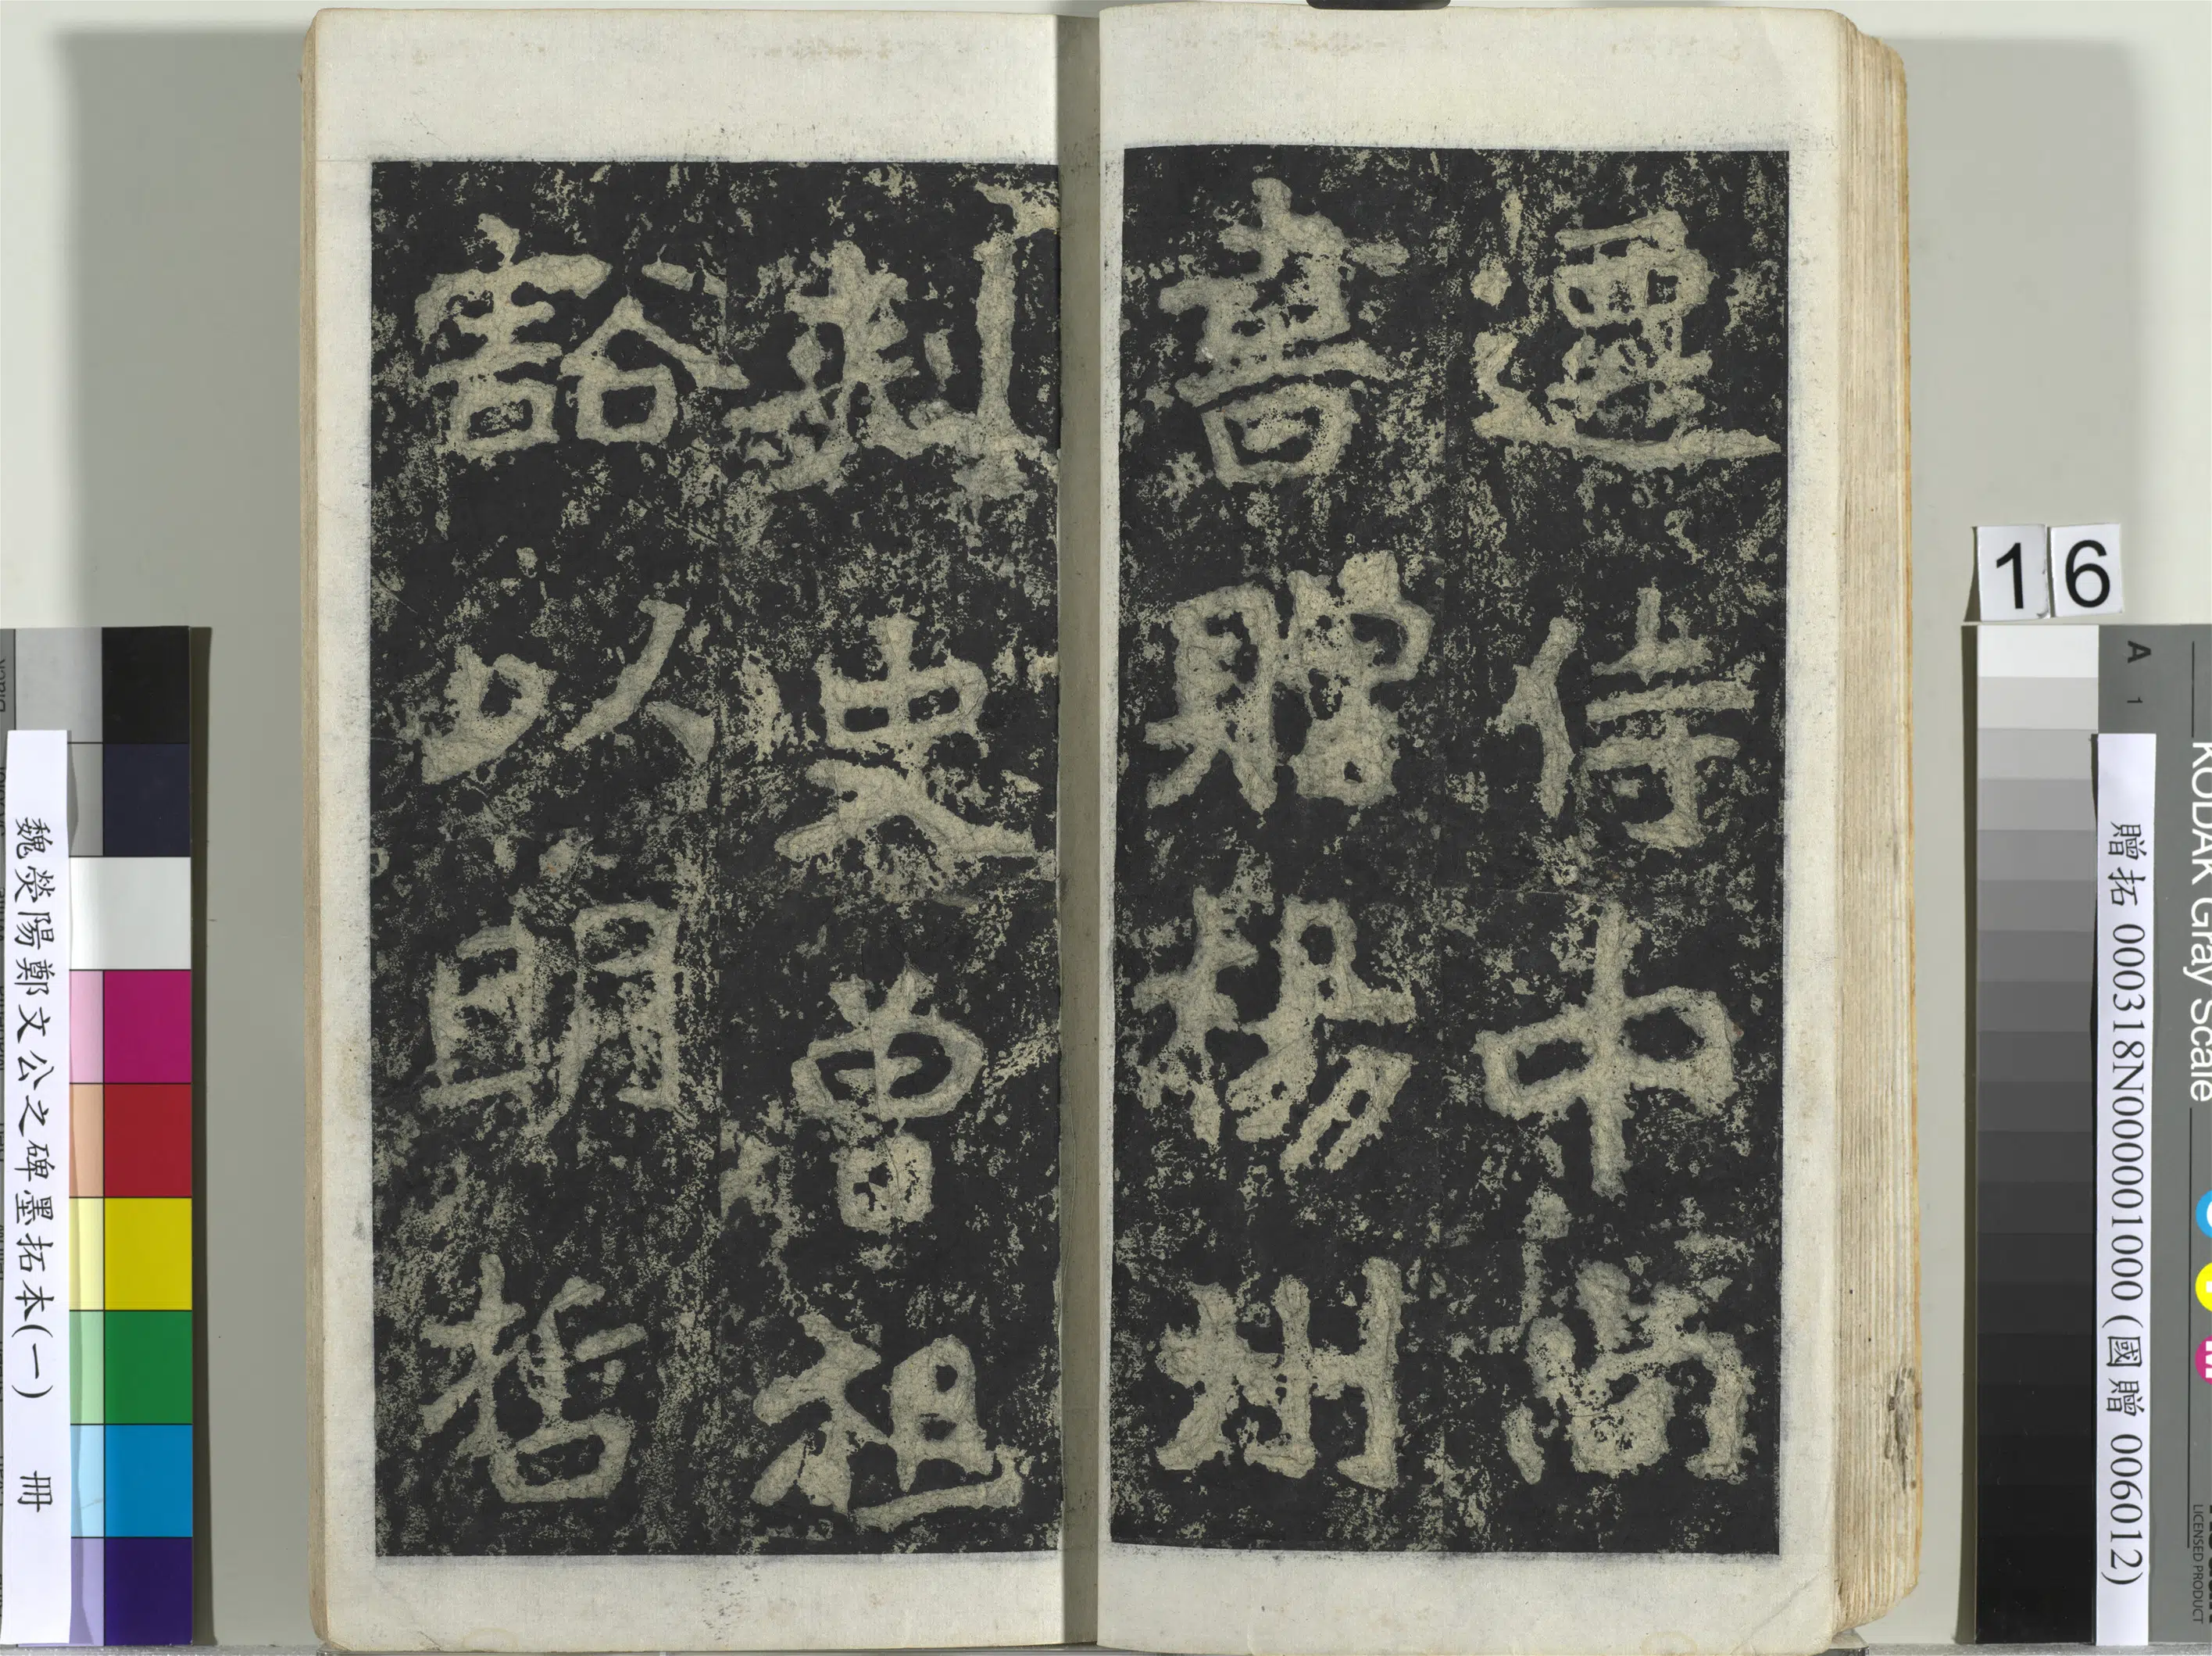 遷侍中尚
書贈楊州
刺史曾祖
豁以明哲
16
贈拓 000318N000001000 (國贈 006012)
魏滎陽鄭文公之碑墨拓本(一) 冊
KODAK Gray Scale
A 1
LICENSED PRODUCT